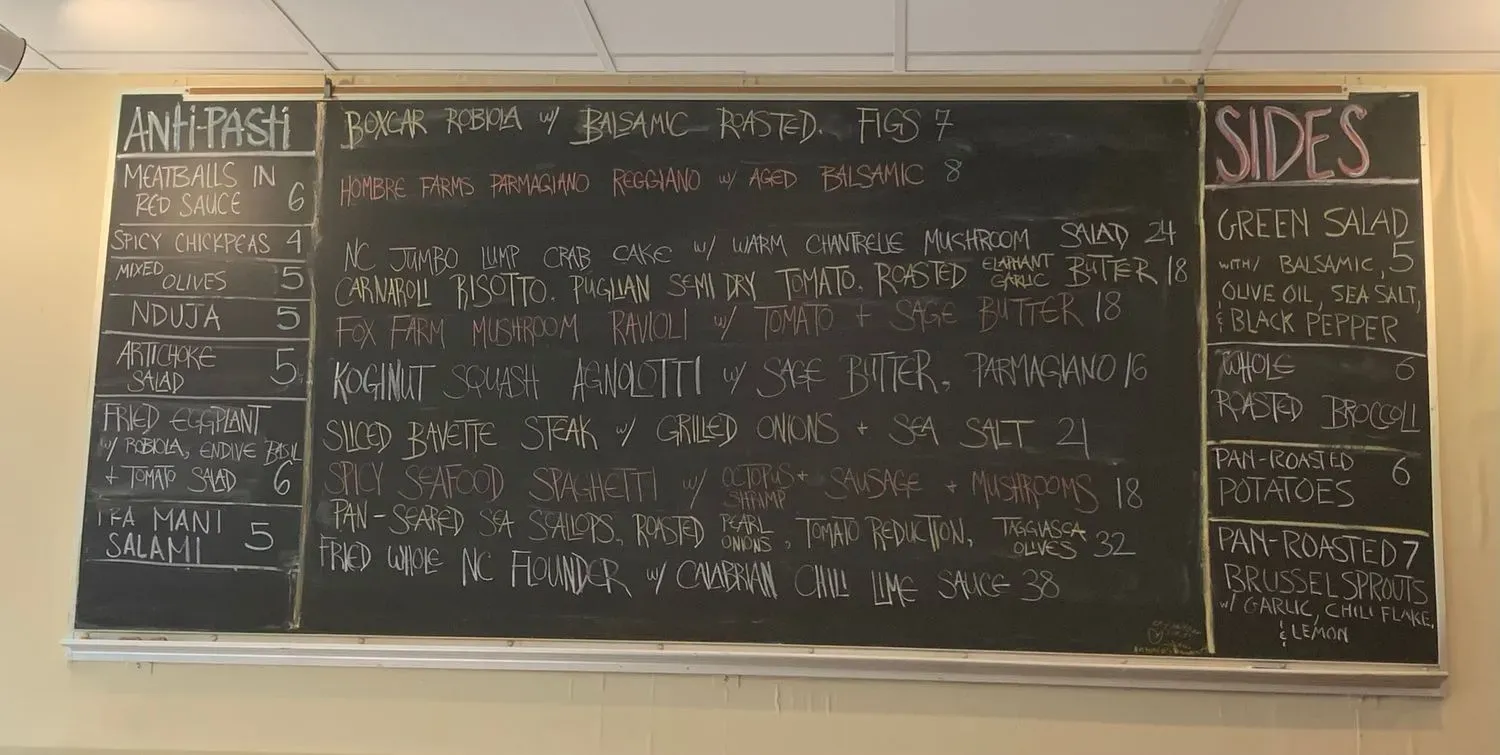 ANTI-PASTI
MEATBALLS IN
RED SAUCE 6
SPICY CHICKPEAS 4
MIXED OLIVES 5
NDUJA 5
ARTICHOKE
SALAD 5
FRIED EGGPLANT
w/ ROBIOLA, ENDIVE BASIL
+ TOMATO SALAD 6
TRA MANI
SALAMI 5
BOXCAR ROBIOLA w/ BALSAMIC ROASTED. FIGS 7
HOMBRE FARMS PARMAGIANO REGGIANO w/ AGED BALSAMIC 8
NC JUMBO LUMP CRAB CAKE w/ WARM CHANTRELLE MUSHROOM SALAD 24
CARNAROLI RISOTTO. PUGLIAN SEMI DRY TOMATO. ROASTED ELAPHANT GARLIC BUTTER 18
FOX FARM MUSHROOM RAVIOLI w/ TOMATO + SAGE BUTTER 18
KOGINUT SQUASH AGNOLOTTI w/ SAGE BUTTER, PARMAGIANO 16
SLICED BAVETTE STEAK w/ GRILLED ONIONS + SEA SALT 21
SPICY SEAFOOD SPAGHETTI w/ OCTOPUS + SHRIMP SAUSAGE + MUSHROOMS 18
PAN-SEARED SEA SCALLOPS, ROASTED PEARL ONIONS, TOMATO REDUCTION, TAGGIASCA OLIVES 32
FRIED WHOLE NC FLOUNDER w/ CALABRIAN CHILI LIME SAUCE 38
SIDES
GREEN SALAD
WITH/ BALSAMIC, 5
OLIVE OIL, SEA SALT,
& BLACK PEPPER
WHOLE 6
ROASTED BROCCOLI
PAN-ROASTED 6
POTATOES
PAN-ROASTED 7
BRUSSEL SPROUTS
w/ GARLIC, CHILI FLAKE,
& LEMON